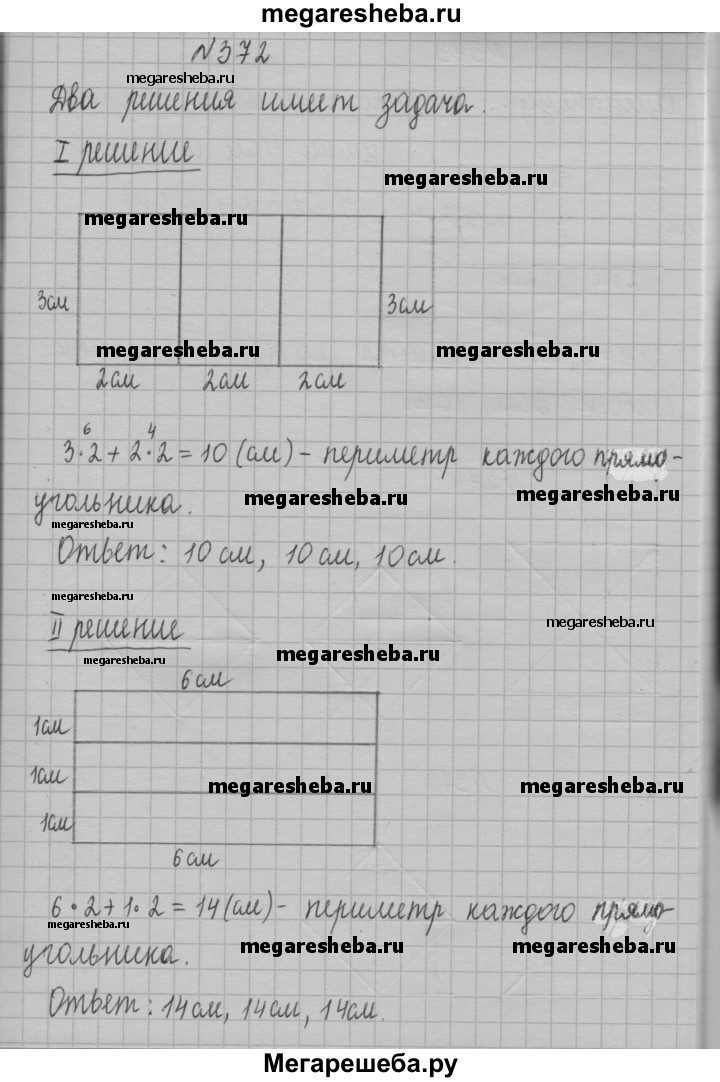 megaresheba.ru
№372
megaresheba.ru
Два решения имеет задача.
I решение
megaresheba.ru
megaresheba.ru
3см
3см
megaresheba.ru
megaresheba.ru
2см 2см 2см
6 4
3·2+2·2=10(см)-периметр каждого прямо-
угольника.
megaresheba.ru
megaresheba.ru
megaresheba.ru
Ответ: 10см, 10см, 10см.
megaresheba.ru
II решение
megaresheba.ru
megaresheba.ru
megaresheba.ru
6см
1см
1см
megaresheba.ru
megaresheba.ru
1см
6см
6·2+1·2=14(см)-периметр каждого прямо-
megaresheba.ru
угольника.
megaresheba.ru
megaresheba.ru
Ответ: 14см, 14см, 14см.
Мегарешеба.ру